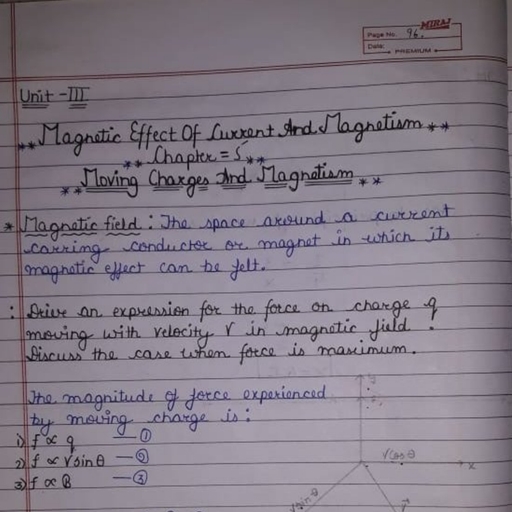 MIRAJ
Page No. 96.
Date:
PREMIUM
Unit - III
** Magnetic Effect Of Current And Magnetism **
** Chapter = 5 **
** Moving Charges And Magnetism **
* Magnetic field : The space around a current
carring conductor or magnet in which its
magnetic effect can be felt.
: Drive an expression for the force on charge q
moving with velocity V in magnetic field.
Discuss the case when force is maximum.
The magnitude of force experienced
by moving charge is :
1) f ∝ q —①
2) f ∝ V sin θ —②
3) f ∝ B —③
y
V Cos θ
x
V sin θ